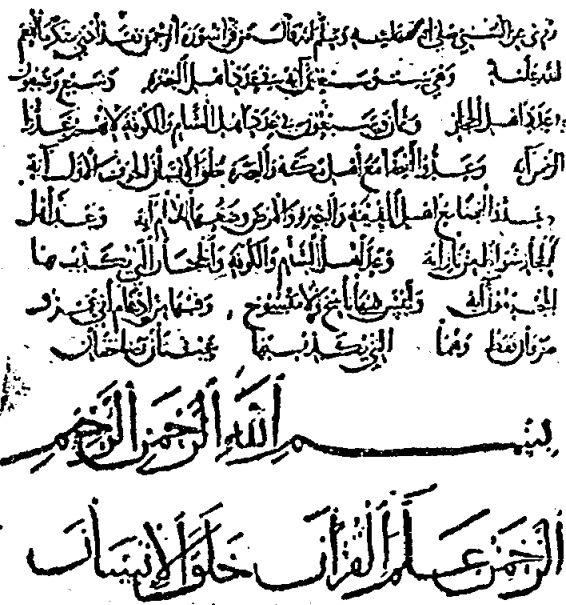 روي عن النبي صلى الله عليه وسلم انه قال من قرا سورة الرحمن فقد ادى شكر ما انعم
الله عليه وهي ست وسبعون آية في عدد اهل البصرة وسبع وسبعون
في عدد اهل الحجاز وثمان وسبعون في عدد اهل الشام والكوفة
الرحمن آية وعد اهل مكة والبصرة خلق الانسان الاول آية
اهل المدينة والبصرة والارض وضعها للانام آية وعد اهل
الحجاز شواظ من نار آية وعد اهل الشام والكوفة والحجاز التي يكذب بها
المجرمون آية وليس فيها ناسخ ولا منسوخ وفيها من الادغام
حرفان فقط وهما التي يكذب بها عينان نضاختان
بسم الله الرحمن الرحيم
الرحمن علم القرآن خلق الإنسان